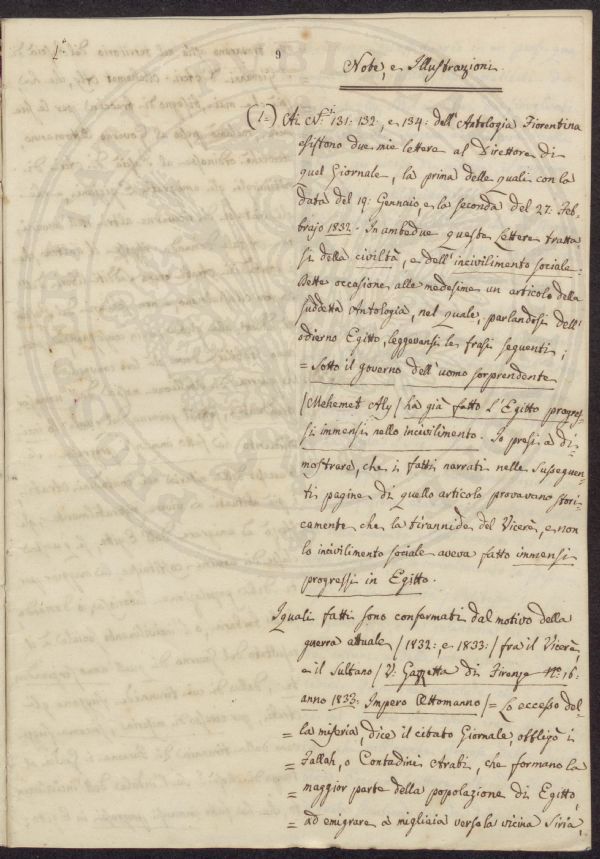 1ª
9
Note, e Illustrazioni
(1.) Ai N.ri 131: 132, e 134: dell'Antologia Fiorentina
esistono due mie lettere al Direttore di
quel Giornale, la prima delle quali con la
data del 19: Gennaio, e la seconda del 27: Feb-
brajo 1832. In ambedue queste Lettere tratta-
si della civiltà, e dell'incivilimento sociale.
Dette occasione alle medesime un articolo della
suddetta Antologia, nel quale, parlandosi dell'
odierno Egitto, leggevansi le frasi seguenti;
= Sotto il governo dell'uomo sorprendente
/Mehemet Aly/ ha già fatto l'Egitto progres-
si immensi nello incivilimento. Io presi a di-
mostrare, che i fatti narrati nelle susseguen-
ti pagine di quello articolo provavano stori-
camente che la tirannide del Vicerè, e non
lo incivilimento sociale aveva fatto immensi
progressi in Egitto.
I quali fatti sono confermati dal motivo della
guerra attuale /1832: e 1833:/ fra il Vicerè,
e il Sultano /V: Gazzetta di Firenze N.o 16:
anno 1833: Impero Ottomanno/= Lo eccesso del-
= la miseria, dice il citato Giornale, obbligò i
= Fallah, o Contadini Arabi, che formano la
= maggior parte della popolazione di Egitto,
= ad emigrare a migliaia verso la vicina Siria,